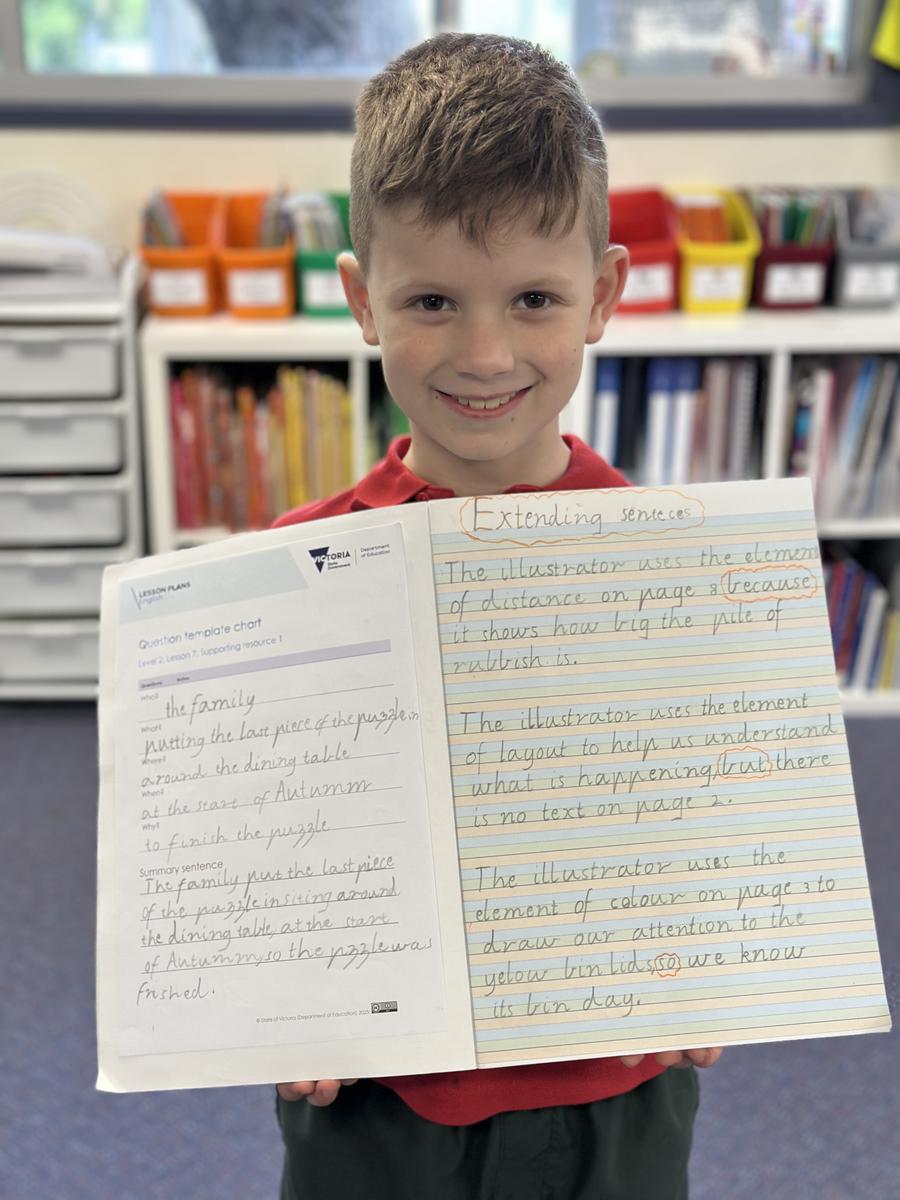 LESSON PLANS
English
VICTORIA
State
Government
Department
of Education
Question template chart
Level 2: Lesson 7, Supporting resource 1
Questions Notes
Who?
the family
What?
putting the last piece of the puzzle in
Where?
around the dining table
When?
at the start of Autumm
Why?
to finish the puzzle
Summary sentence
The family put the last piece
of the puzzle in siting around
the dining table at the start
of Autumm, so the pzzle was
frished.
© State of Victoria (Department of Education), 2025
Extending senteces
The illustrator uses the elemen
of distance on page 8 because
it shows how big the pile of
rubbish is.
The illustrator uses the element
of layout to help us understand
what is happening, but there
is no text on page 2.
The illustrator uses the
element of colour on page 3 to
draw our attention to the
yelow bin lids, so we know
its bin day.